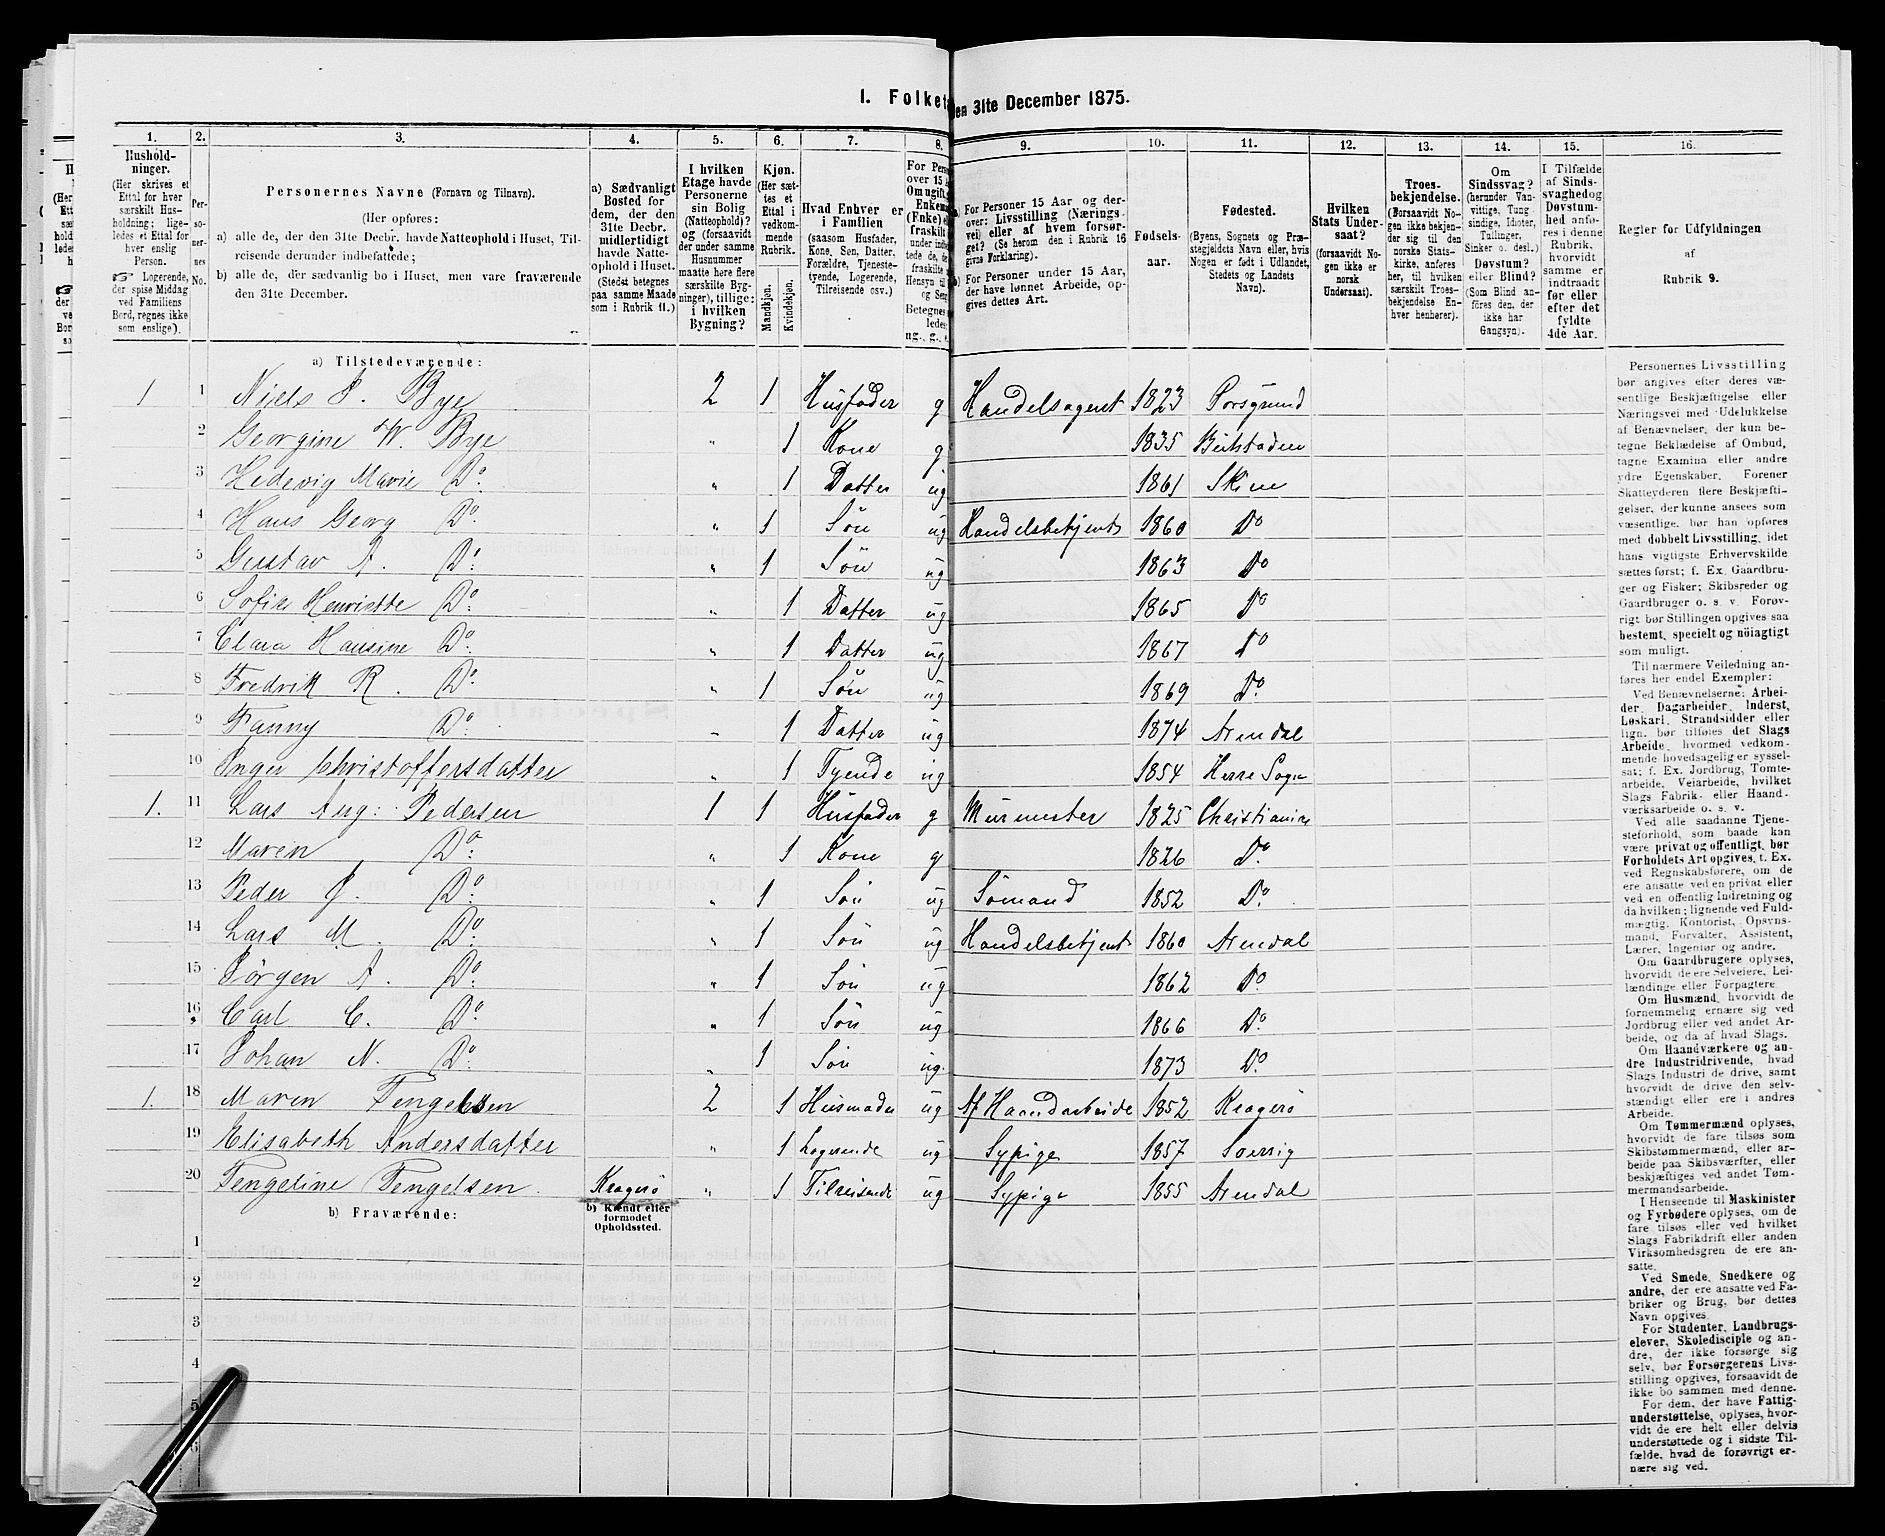 I. Folketæ
den 31te December 1875.
1. 2. 3. 4. 5. 6. 7. 8. 9. 10. 11. 12. 13. 14. 15. 16.
Hushold-
ninger.
(Her skrives et
Ettal for hver
særskilt Hus-
holdning; lige-
ledes et Ettal for
hver enslig
Person.
☞ Logerende,
der spise Middag
ved Familiens
Bord, regnes ikke
som enslige).
Per-
so-
ner-
nes
No.
Personernes Navne (Fornavn og Tilnavn).
(Her opføres:
a) alle de, der den 31te Decbr. havde Natteophold i Huset, Til-
reisende derunder indbefattede;
b) alle de, der sædvanlig bo i Huset, men vare fraværende
den 31te December.
a) Sædvanligt
Bosted for
dem, der den
31te Decbr.
midlertidigt
havde Natte-
ophold i Huset.
(Stedet betegnes
paa samme Maade
som i Rubrik 11.)
I hvilken
Etage havde
Personerne
sin Bolig
(Natteophold)?
og (forsaavidt
der under samme
Husnummer
maatte here flere
særskilte Byg-
ninger), tillige:
i hvilken
Bygning?
Kjøn.
(Her sæt-
tes et
Ettal i
vedkom-
mende
Rubrik.
Mandkjøn.
Kvindekjøn.
Hvad Enhver er
i Familien
(saasom Husfader,
Kone, Søn, Datter,
Forældre, Tjeneste-
tyende, Logerende,
Tilreisende osv.)
For Person
over 15 A
Om ugift,
Enkem
(Enke)
fraskilt
ng., g.,
a) For Personer 15 Aar og der-
over: Livsstilling (Nærings-
vei) eller af hvem forsør-
get? (Se herom den i Rubrik 16
givne Forklaring).
b) For Personer under 15 Aar,
der have lønnet Arbeide, op-
gives dettes Art.
Fødsels-
aar.
Fødested.
(Byens, Sognets og Præ-
stegjeldets Navn eller, hvis
Nogen er født i Udlandet,
Stedets og Landets
Navn).
Hvilken
Stats Under-
saat?
(forsaavidt No-
gen ikke er
norsk
Undersaat).
Troes-
bekjendelse.
(Forsaavidt No-
gen ikke bekjen-
der sig til den
norske Stats-
kirke, anføres
her, til hvilken
særskilt Troes-
bekjendelse En-
hver henhører).
Om
Sindssvag?
(herunder Van-
vittige, Tung-
sindige, Idioter,
Tullinger,
Sinker o. desl.)
Døvstum?
eller Blind?
(Som Blind an-
føres den, der
ikke har
Gangsyn).
I Tilfælde
af Sinds-
svaghed og
Døvstum-
hed anfø-
res i denne
Rubrik,
hvorvidt
samme er
indtraadt
før eller
efter det
fyldte
4de Aar.
Regler for Udfyldningen
af
Rubrik 9.
a) Tilstedeværende:
1 1 Niels J. Bye 2 1 Husfader g Handelsagent 1823 Porsgrund
2 Georgine W. Bye " 1 Kone g 1835 Beitstaden
3 Hedevig Marie Do: " 1 Datter ug 1861 Skien
4 Hans Georg Do: " 1 Søn ug Handelsbetjent 1860 Do
5 Gustav A. Do: " 1 Søn ug 1863 Do
6 Sofie Henriette Do: " 1 Datter ug 1865 Do
7 Clara Hansine Do: " 1 Datter ug 1867 Do
8 Fredrik R. Do: " 1 Søn ug 1869 Do.
9 Fanny Do: " 1 Datter ug 1874 Arendal
10 Inger Christoffersdatter " 1 Tyende ug 1854 Herre Sogn
1. 11 Lars Aug: Pedersen 1 1 Husfader g Murmester 1825 Christiania
12 Maren Do: " 1 Kone g 1826 Do.
13 Peder J. Do: " 1 Søn ug Sømand 1852 Do.
14 Lars M. Do: " 1 Søn ug Handelsbetjent 1860 Arendal
15 Jörgen A. Do: " 1 Søn ug 1862 Do.
16 Carl C. Do: " 1 Søn ug 1866 Do.
17 Johan N. Do: " 1 Søn ug. 1873 Do.
1. 18 Maren Tengelsen 2 1 Husmoder ug Af Haandarbeide 1852 Kragerö
19 Elisabeth Andersdatter " 1 Logerende ug Sypige 1857 Sverrig
20 Tengeline Tengelsen. Kragerö " 1 Tilreisende ug Sypige 1855 Arendal
b) Fraværende:
b) Kjendt eller
formodet
Opholdssted.
1
2
3
4
5
6
Personernes Livsstilling
bør angives efter deres væ-
sentlige Beskjæftigelse eller
Næringsvei med Udelukkelse
af Benævnelser, der kun be-
tegne Beklædelse af Ombud,
tagne Examina eller andre
ydre Egenskaber. Forener
Skatteyderen flere Beskjæfti-
gelser, der kunne ansees som
væsentlige, bør han opføres
med dobbelt Livsstilling, idet
hans vigtigste Erhvervskilde
sættes først; f. Ex. Gaardbru-
ger og Fisker; Skibsreder og
Gaardbruger o. s. v. Forøv-
rigt bør Stillingen opgives saa
bestemt, specielt og nöiagtigt
som muligt.
Til nærmere Veiledning an-
føres her endel Exempler:
Ved Benævnelserne: Arbei-
der, Dagarbeider, Inderst,
Løskarl, Strandsidder eller
lign. bør tilføies det Slags
Arbeide, hvormed vedkom-
mende hovedsagelig er syssel-
sat; f. Ex. Jordbrug, Tomte-
arbeide, Veiarbeide, hvilket
Slags Fabrik- eller Haand-
værksarbeide o. s. v.
Ved alle saadanne Tjene-
steforhold, som baade kan
være privat og offentligt, bør
Forholdets Art opgives, t. Ex.
ved Regnskabsførere, om de
ere ansatte ved en privat eller
ved en offentlig Indretning og
da hvilken; lignende ved Fuld-
mægtig, Kontorist, Opsyns-
mand, Forvalter, Assistent,
Lærer, Ingeniør og andre.
Om Gaardbrugere oplyses,
hvorvidt de ere Selveiere, Lei-
lændinge eller Forpagtere.
Om Husmænd, hvorvidt de
fornemmelig ernære sig ved
Jordbrug eller ved andet Ar-
beide, og da af hvad Slags.
Om Haandværkere og an-
dre Industridrivende, hvad
Slags Industri de drive, samt
hvorvidt de drive den selv-
stændigt eller ere i andres
Arbeide.
Om Tømmermænd oplyses,
hvorvidt de fare tilsøs som
Skibstømmermænd, eller ar-
beide paa Skibsværfter, eller
beskjæftiges ved andet Tøm-
mermandsarbeide.
I Henseende til Maskinister
og Fyrbødere oplyses, om de
fare tilsøs eller ved hvilket
Slags Fabrikdrift eller anden
Virksomhedsgren de ere an-
satte.
Ved Smede, Snedkere og
andre, der ere ansatte ved Fa-
briker og Brug, bør dettes
Navn opgives.
For Studenter, Landbrugs-
elever, Skoledisciple og an-
dre, der ikke forsørge sig
selv, bør Forsørgerens Livs-
stilling opgives, forsaavidt de
ikke bo sammen med denne.
For dem, der have Fattig-
understøttelse, oplyses, hvor-
vidt de ere helt eller delvis
understøttede og i sidste Til-
fælde, hvad de forøvrigt er-
nære sig ved.